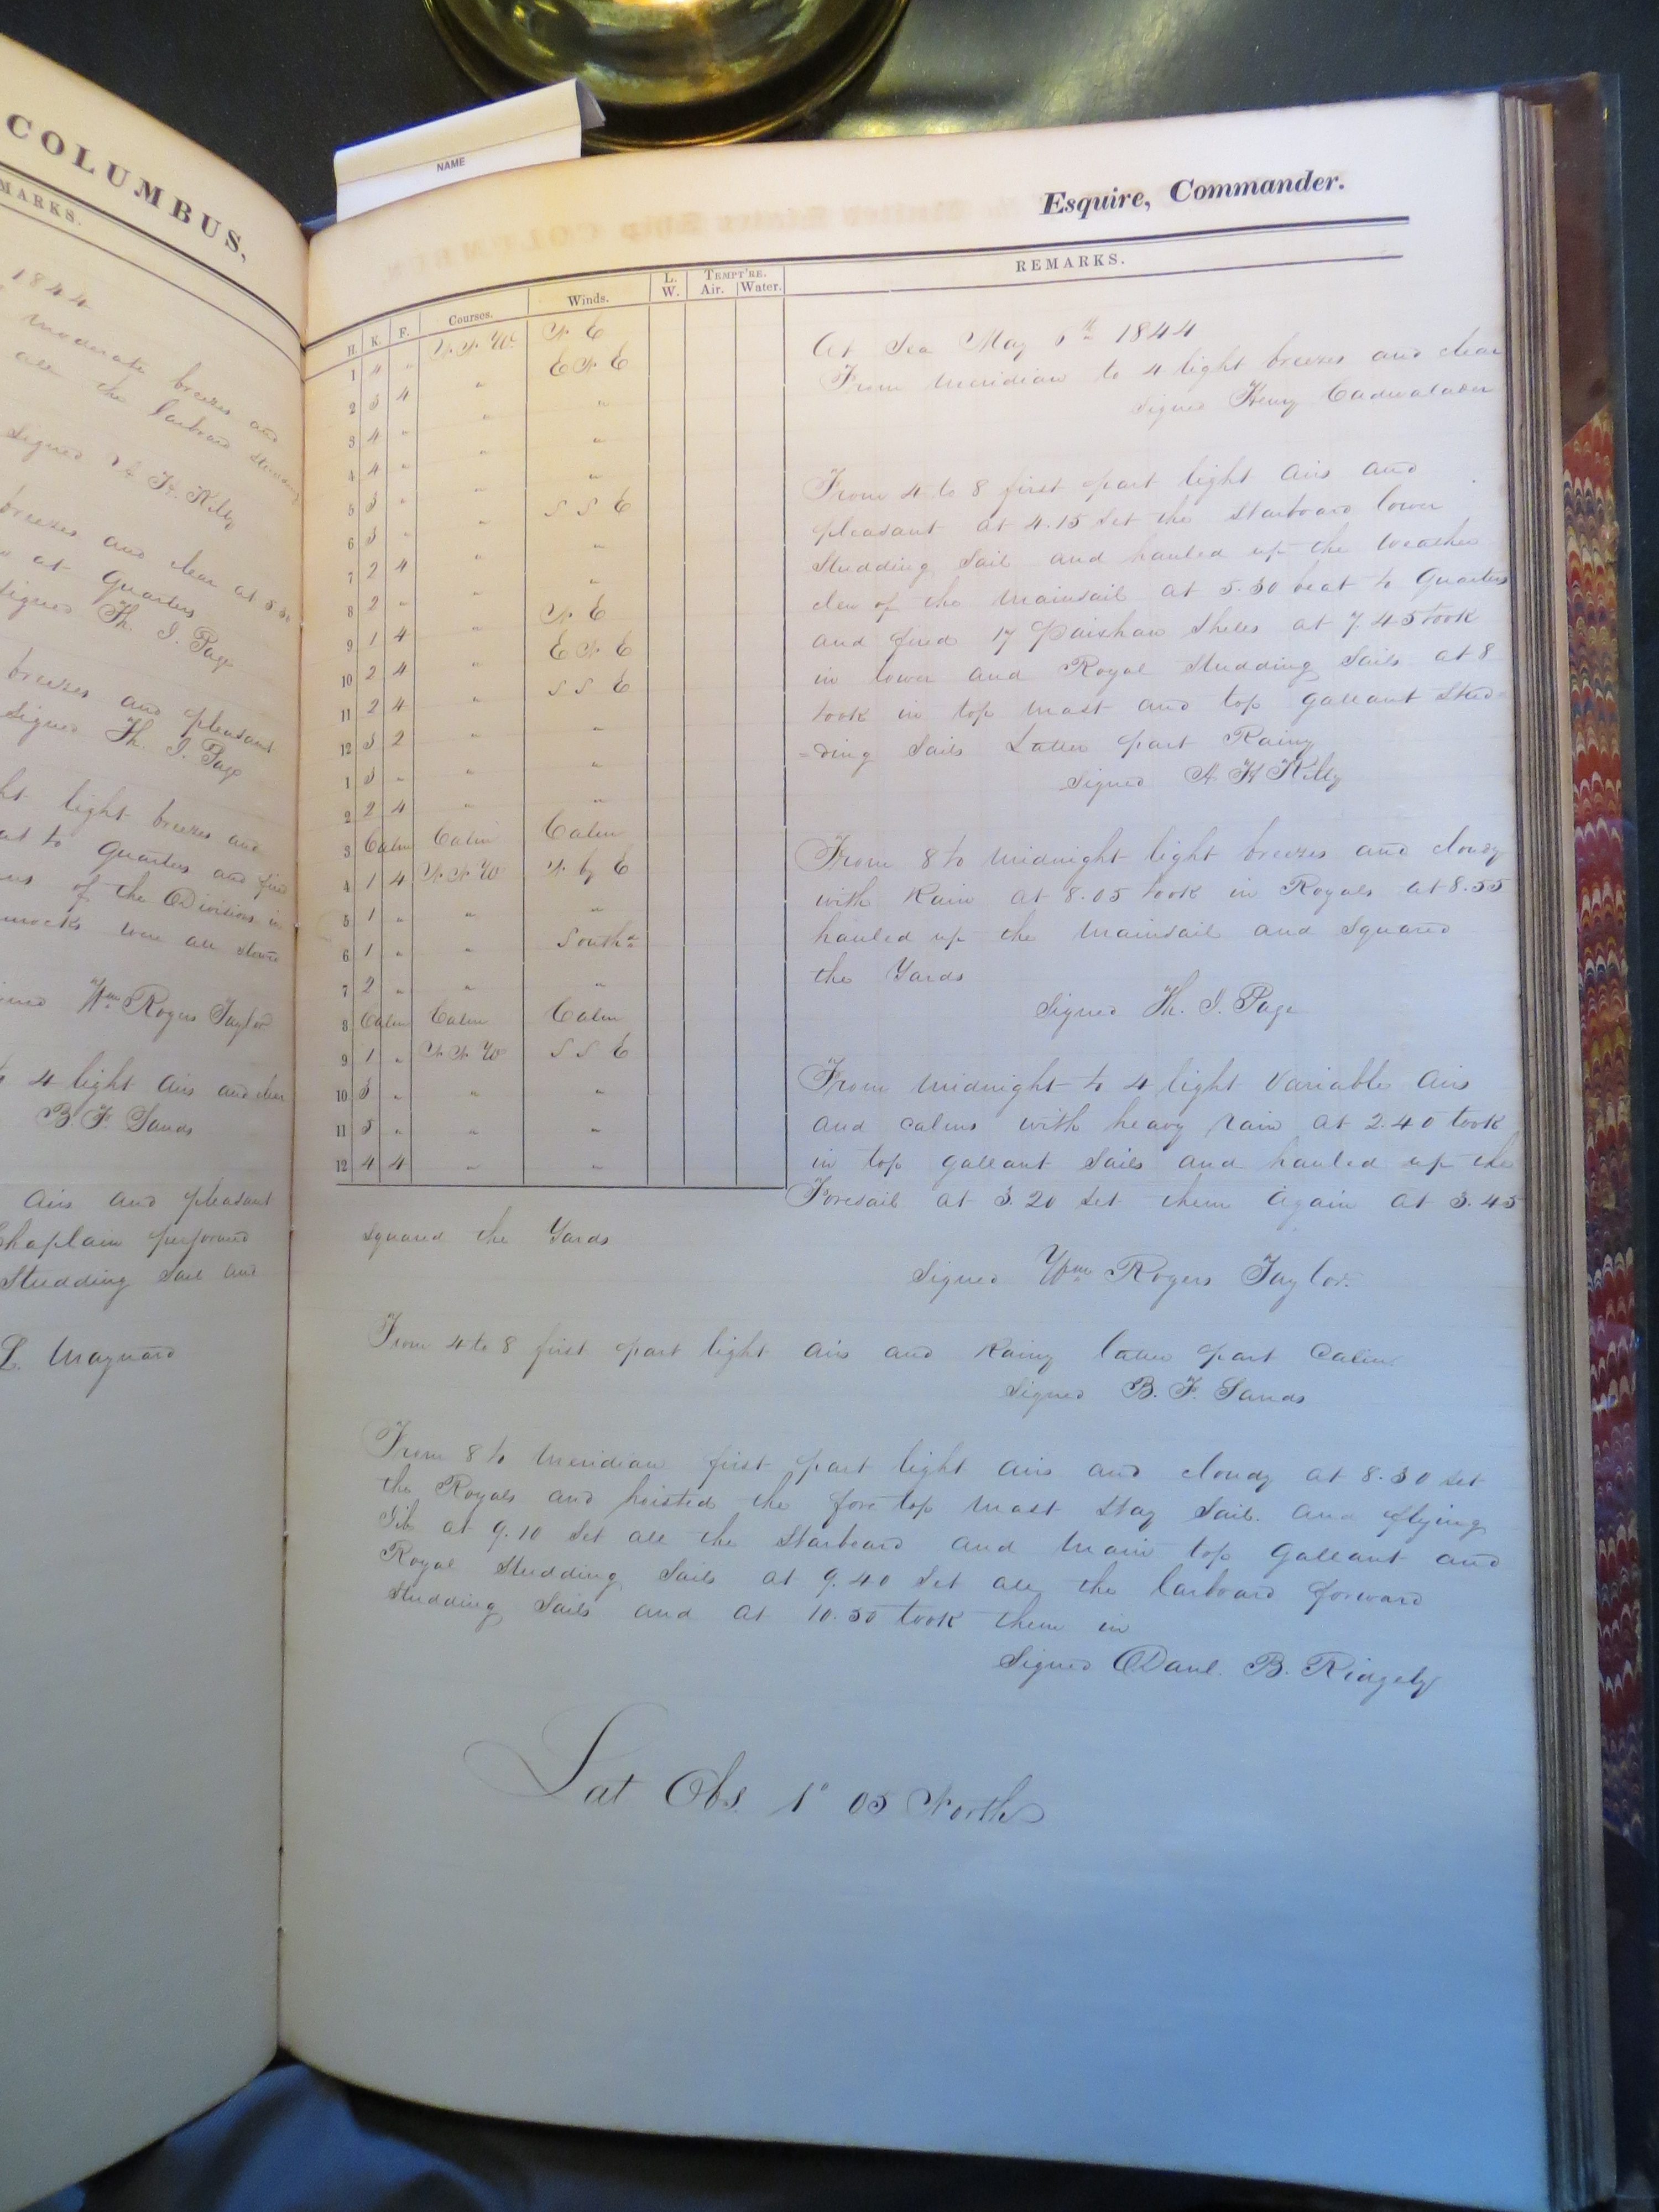 COLUMBUS,
MARKS.
1844
moderate breezes and
all the larboard studding
Signed A. H. Kilty
breezes and clear at 5 30
at Quarters
Signed Th. J. Page
breezes and pleasant
Signed Th. J. Page
light breezes and
at to Quarters and fired
of the Divisions in
mocks were all stowed
Wm Rogers Taylor
4 light airs and clear
B. F. Sands
airs and pleasant
Chaplain performed
Studding Sail and
L. Maynard
NAME
Esquire, Commander.
H. K. F. Courses. Winds. L. W. TEMPT'RE. Air. Water. REMARKS.
1 4 " N N W N E
2 3 4 " E N E
3 4 " " "
4 4 " " "
5 3 " " "
6 3 " " S S E
7 2 4 " "
8 2 " " "
9 1 4 " N E
10 2 4 " E N E
11 2 4 " S S E
12 3 2 " "
1 3 " " "
2 2 4 " "
3 Calm Calm Calm
4 1 4 N N W N by E
5 1 " " "
6 1 " " Southd
7 2 " " "
8 Calm Calm Calm
9 1 " N N W S S E
10 3 " " "
11 5 " " "
12 4 4 " "
At Sea May 6th 1844
From meridian to 4 light breezes and clear
Signed Henry Cadwalader
From 4 to 8 first part light airs and
pleasant at 4.15 set the starboard lower
Studding Sail and hauled up the weather
clew of the mainsail at 5.30 beat to Quarters
and fired 17 Paixhan Shells at 7.45 took
in lower and Royal Studding Sails at 8
took in top mast and top gallant Stud=
=ding Sails Latter part Rainy
Signed A H Kilty
From 8 to midnight light breezes and cloudy
with Rain at 8.05 took in Royals at 8.55
hauled up the mainsail and Squared
the Yards
Signed Th. J. Page
From midnight to 4 light Variable airs
and calms with heavy rain at 2.40 took
in top gallant Sails and hauled up the
Foresail at 3.20 set them again at 3.45
squared the Yards
Signed Wm Rogers Taylor.
From 4 to 8 first part light airs and Rainy latter part Calm
Signed B. F. Sands
From 8 to meridian first part light airs and cloudy at 8.30 set
the Royals and hoisted the fore top mast Stay Sail and flying
Jib at 9.10 Set all the Starboard and main top Gallant and
Royal Studding Sails at 9.40 Set all the larboard forward
Studding Sails and at 10.30 took them in
Signed Danl. B. Ridgely
Lat Obs. 1° 05 North